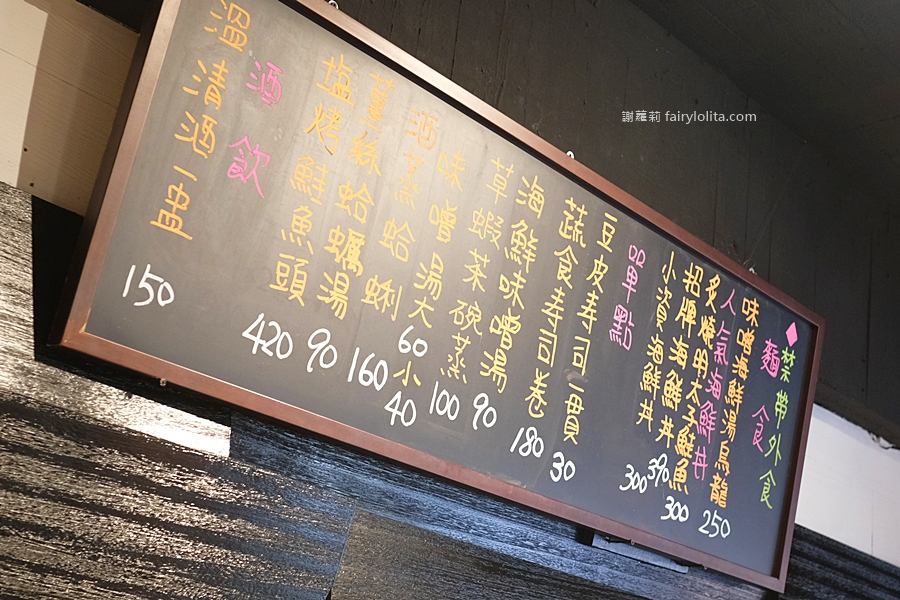 謝蘿莉 fairylolita.com
◆禁帶外食
麵食
味噌海鮮湯烏龍 250
人氣海鮮丼
炙燒明太子鮭魚 300
招牌海鮮丼 390
小資海鮮丼 300
單點
豆皮壽司一貫 30
蔬食壽司卷 180
海鮮味噌湯 90
草蝦茶碗蒸 100
味噌湯大60小40
酒蒸蛤蜊 160
薑絲蛤蠣湯 90
塩烤鮭魚頭 420
酒飲
溫清酒一壺 150